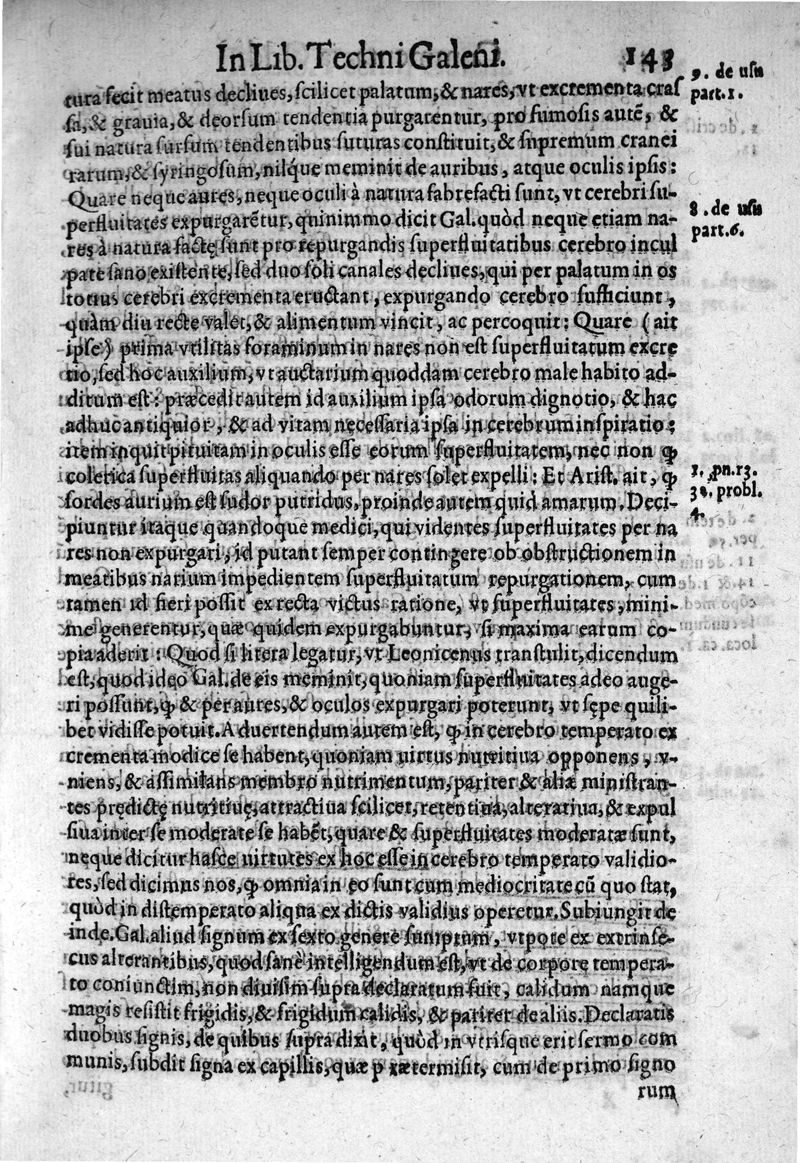 In Lib. Techni Galeni. 143
tura fecit meatus decliues, scilicet palatum, & nares, vt excrementa cras
sa, & grauia, & deorsum tendentia purgarentur, pro fumosis autẽ, &
sui natura sursum tendentibus suturas constituit, & supremum cranei
rarum, & syringosum, nilq́ue meminit de auribus, atque oculis ipsis:
Quare neque aures, neque oculi à natura fabrefacti sunt, vt cerebri su-
perfluitates expurgarẽtur, quinimmo dicit Gal. quòd neque etiam na-
res à natura factę sunt pro repurgandis superfluitatibus cerebro incul
pate sano existente, sed duo soli canales decliues, qui per palatum in os
totius cerebri excrementa eructant, expurgando cerebro sufficiunt,
quàm diu recte valet, & alimentum vincit, ac percoquit: Quare (ait
ipse) prima vtilitas foraminum in nares non est superfluitatum excre
tio, sed hoc auxilium, vt auctarium quoddam cerebro male habito ad-
ditum est: præcedit autem id auxilium ipsa odorum dignotio, & hac
adhuc antiquior, & ad vitam necessaria ipsa in cerebrum inspiratio:
item inquit pituitam in oculis esse eorum superfluitatem, nec non ꝙ
colerica superfluitas aliquando per nares solet expelli: Et Arist. ait, ꝙ
sordes aurium est sudor putridus, proinde autem quid amarum. Deci-
piuntur itaque quandoque medici, qui videntes superfluitates per na
res non expurgari, id putant semper contingere ob obstructionem in
meatibus narium impedientem superfluitatum repurgationem, cum
tamen id fieri possit ex recta victus ratione, vt superfluitates, mini-
me generentur, quæ quidem expurgabuntur, si maxima earum co-
pia aderit: Quod si litera legatur, vt Leonicenus transtulit, dicendum
est, quod ideo Gal. de eis meminit, quoniam superfluitates adeo auge-
ri possunt, ꝙ & per aures, & oculos expurgari poterunt, vt sępe quili-
bet vidisse potuit. Aduertendum autem est, ꝙ in cerebro temperato ex
crementa modice se habent, quoniam uirtus nutritiua opponens, v-
niens, & assimilans membro nutrimentum, pariter & aliæ ministran-
tes prędictę nutritiuę, attractiua scilicet, retentiua, alteratiua, & expul
siua inter se moderate se habẽt, quare & superfluitates moderatæ sunt,
neque dicitur hasce uirtutes ex hoc esse in cerebro temperato validio-
res, sed dicimus nos, ꝙ omnia in eo sunt cum mediocritate cũ quo stat,
quòd in distemperato aliqua ex dictis validius operetur. Subiungit de
inde. Gal. aliud signum ex sexto genere sumptum, vtpote ex extrinse-
cus alterantibus, quod sanè intelligendum est, vt de corpore tempera-
to coniunctim, non diuisim supra declaratum fuit, calidum namque
magis resistit frigidis, & frigidum calidis, & pariter de aliis. Declaratis
duobus signis, de quibus supra dixit, quòd in vtrisque erit sermo com
munis, subdit signa ex capillis, quæ p rætermisit, cum de primo signo
rum
9. de usu
part. 1.
8. de usu
part. 6.
1. pn. 13.
32. probl.
4.